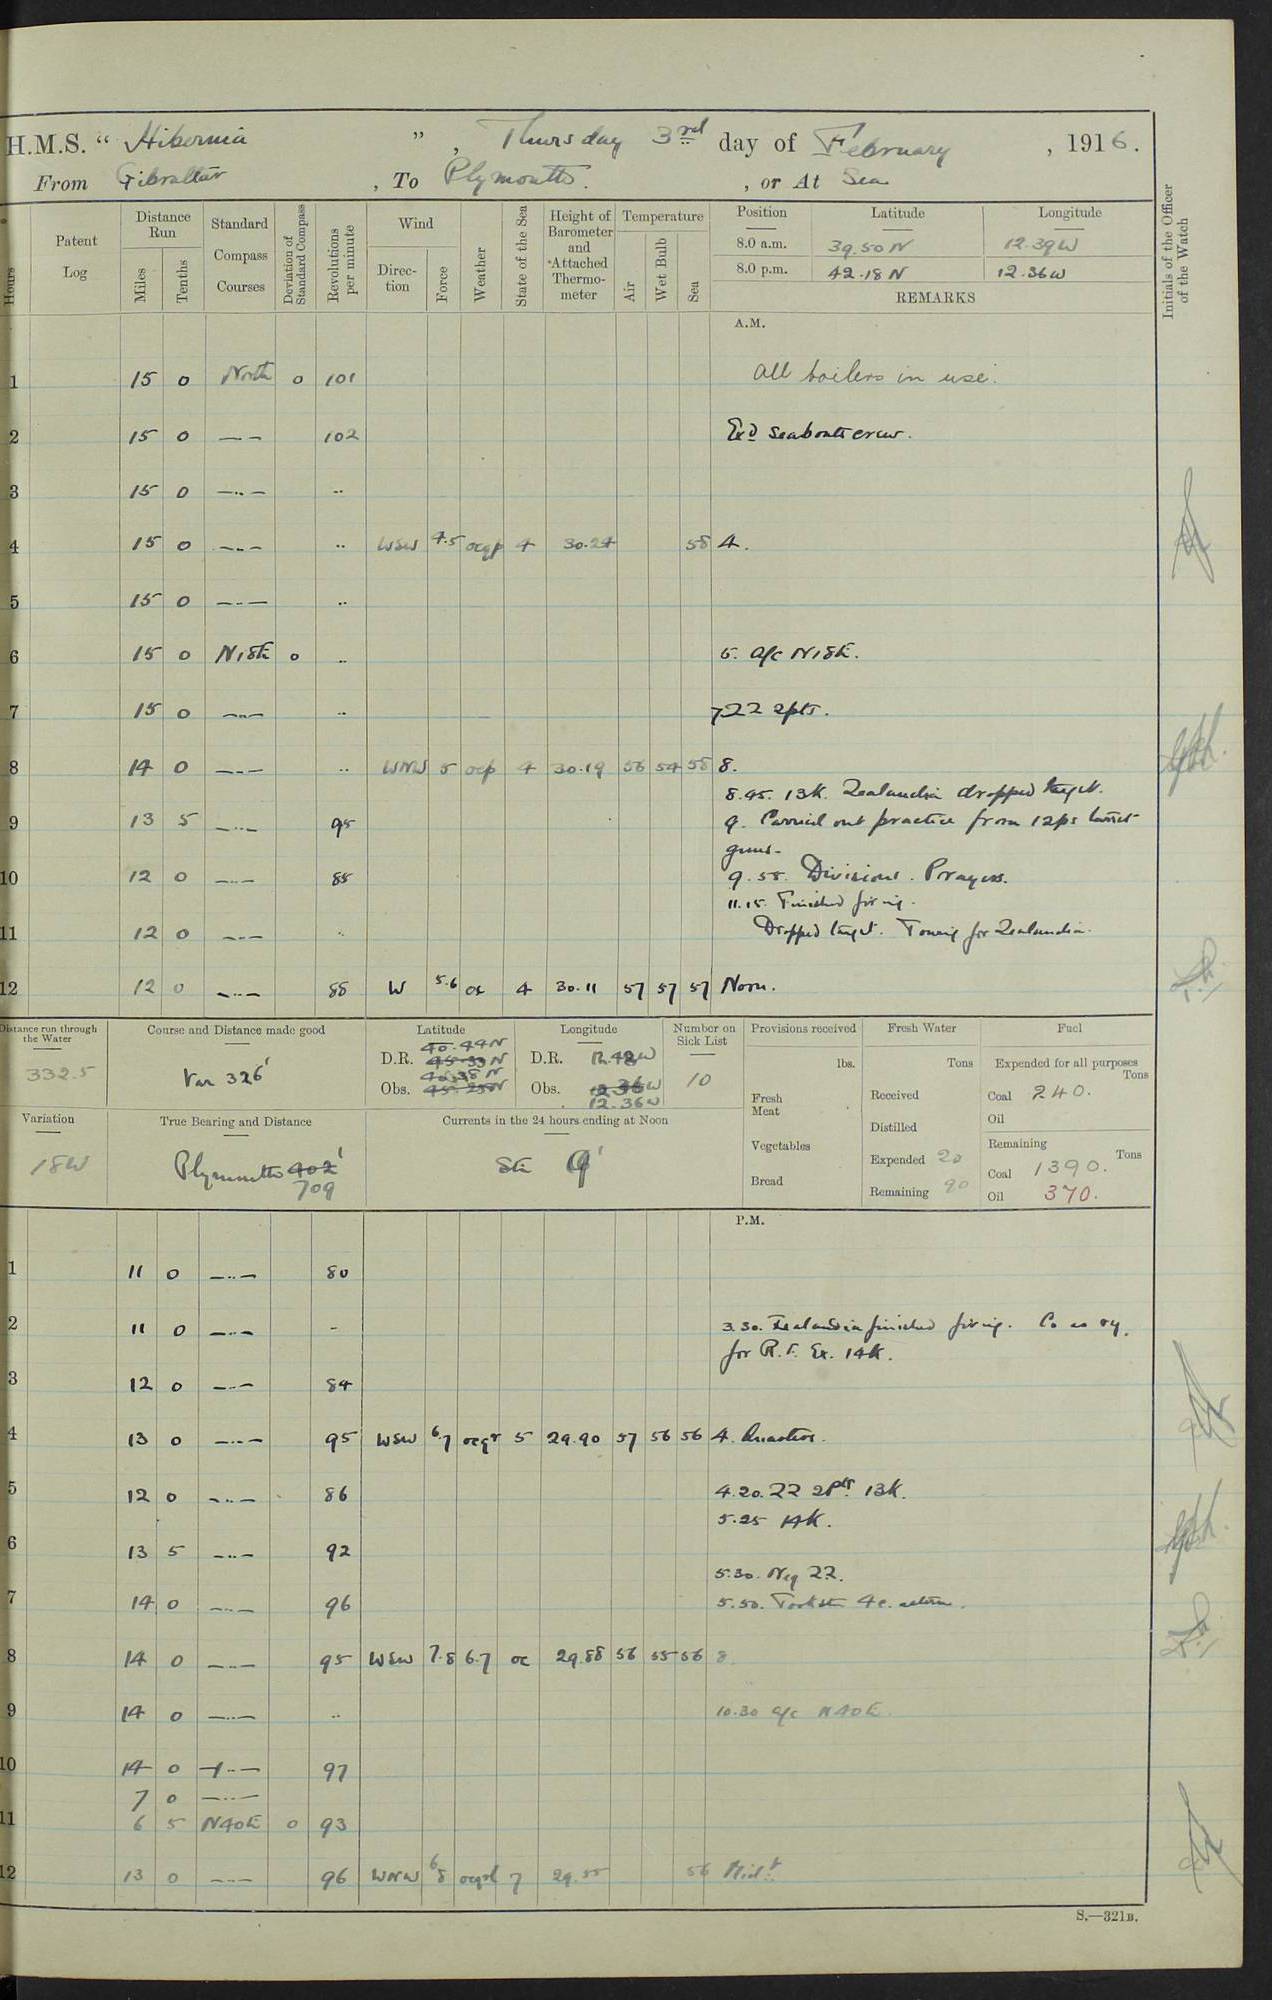 H.M.S. " Hibernia ", Thursday 3rd day of February, 1916.
From Gibraltar, To Plymouth., or At Sea
Hours
Patent Log
Distance Run
Miles
Tenths
Standard Compass Courses
Deviation of Standard Compass
Revolutions per minute
Wind
Direction
Force
Weather
State of the Sea
Height of Barometer and *Attached Thermometer
Temperature
Air
Wet Bulb
Sea
Position Latitude Longitude
8.0 a.m. 39.50 N 12.39 W
8.0 p.m. 42.18 N 12.36 W
REMARKS
Initials of the Officer of the Watch
A.M.
1 15 0 North 0 101 All boilers in use.
2 15 0 —..— 102 Exd Seaboats crew.
3 15 0 —..— ..
4 15 0 —..— .. WSW 4.5 ocqp 4 30.24 58 4.
5 15 0 —..— ..
6 15 0 N15E 0 .. 5. A/c N15E.
7 15 0 —..— .. 722 2pts.
8 14 0 —..— .. WNW 5 ocp 4 30.19 56 54 58 8.
8.45. 13K. Zealandia dropped target.
9 13 5 —..— 95 9. Carried out practice from 12pr turret
guns.
10 12 0 —..— 88 9.55. Divisions. Prayers.
11.15. Finished firing.
11 12 0 —..— .. Dropped target. Towing for Zealandia.
12 12 0 —..— 88 W 5.6 oc 4 30.11 57 57 57 Noon.
Distance run through the Water
332.5
Course and Distance made good
Var 326'
Latitude
D.R. 40.44 N
Obs. 40.38 N
Longitude
D.R. 12.42 W
Obs. 12.36 W
12.36 W
Number on Sick List
10
Provisions received
lbs.
Fresh Meat
Vegetables
Bread
Fresh Water
Tons
Received
Distilled
Expended 20
Remaining 90
Fuel
Expended for all purposes
Tons
Coal 240.
Oil
Remaining
Tons
Coal 1390.
Oil 370.
Variation
18W
True Bearing and Distance
Plymouth 402'
709
Currents in the 24 hours ending at Noon
9'
P.M.
1 11 0 —..— 80
2 11 0 —..— - 3.30. Zealandia finished firing. Co as rq.
for R.F. Ex. 14K.
3 12 0 —..— 84
4 13 0 —..— 95 WSW 6.7 ocqr 5 29.90 57 56 56 4. Quarters.
5 12 0 —..— 86 4.20. ZZ 2Pts 13K.
5.25 14K.
6 13 5 —..— 92
5.30. Neg ZZ.
7 14 0 —..— 96 5.50. Took stn 4c. astern.
8 14 0 —..— 95 WSW 7.8 6.7 oc 29.88 56 55 56 8
9 14 0 —..— .. 10.30 a/c N40E.
10 14 0 —..— 97
7 0 —..—
11 6 5 N40E 0 93
12 13 0 —..— 96 WNW 6.8 7 29.55 56 Midt.
S.—321B.